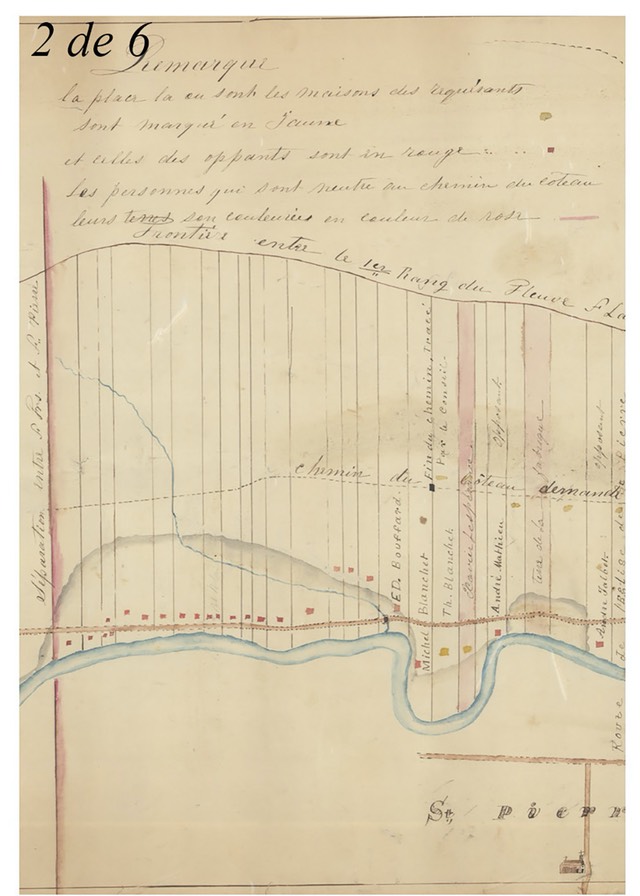 2 de 6
Remarque
la place la ou sont les maisons des requérants
sont marqué en Jaune
et celles des oppants sont in rouge
Les personnes qui sont neutre au chemin du coteau
leurs son couleurées en couleur de rose
Frontière entre le 1er Rang du Fleuve St La
Séparation entre St Frs et St Pierre
Fin du chemin Tracé
Par le Conseil.
chemin du Coteau demandé
opposant
opposant
Terre de la fabrique
ED. Bouffard.
Michel Blanchet
Th. Blanchet.
André Mathieu
Route de l'église de St Pierre
St, Pierr